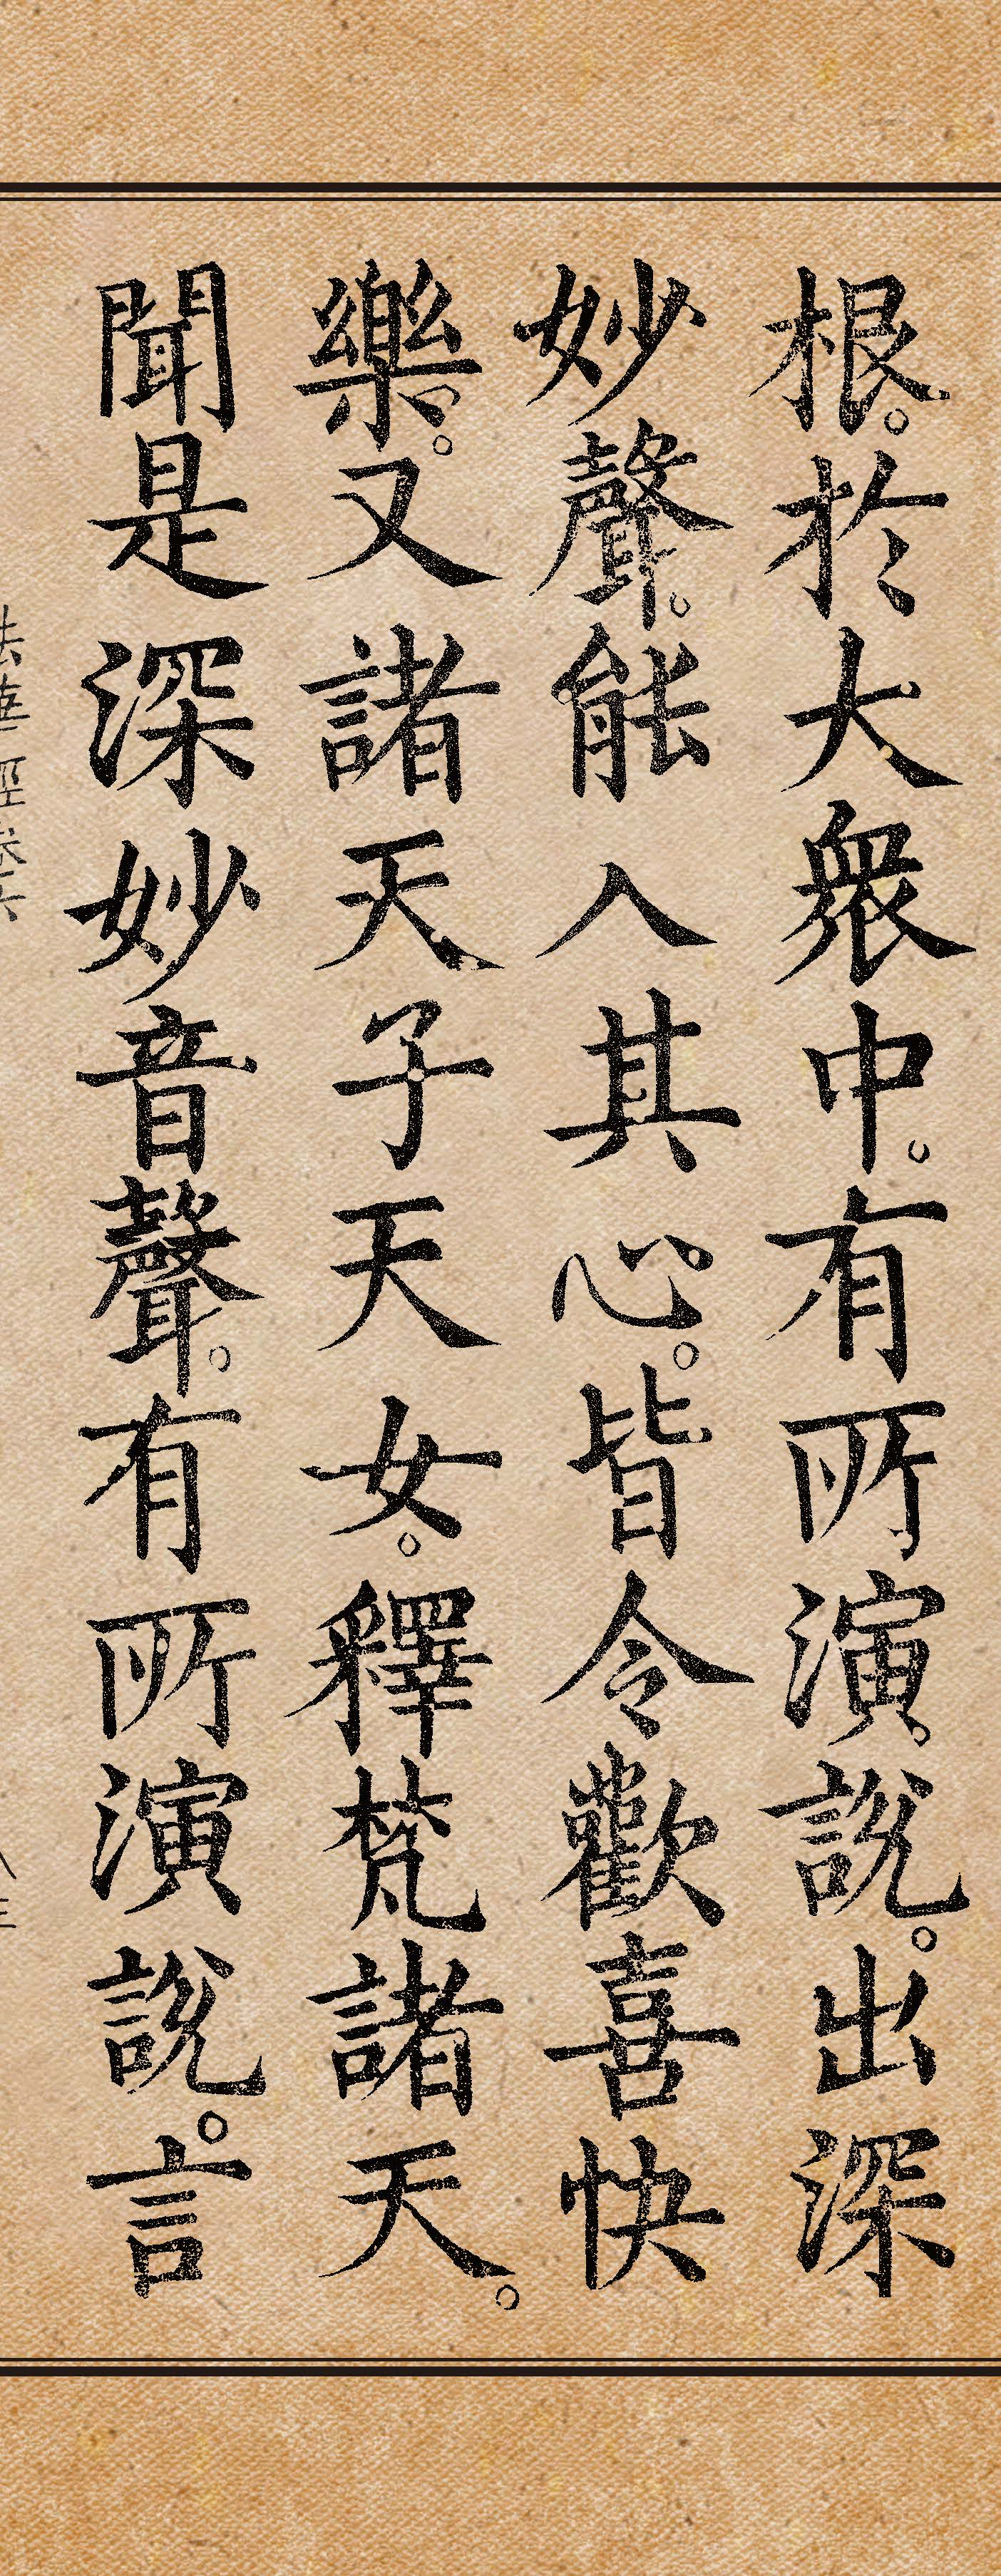 根。於大衆中。有所演說。出深
妙聲。能入其心。皆令歡喜快
樂。又諸天子天女。釋梵諸天。
聞是深妙音聲。有所演說。言
法華經卷六